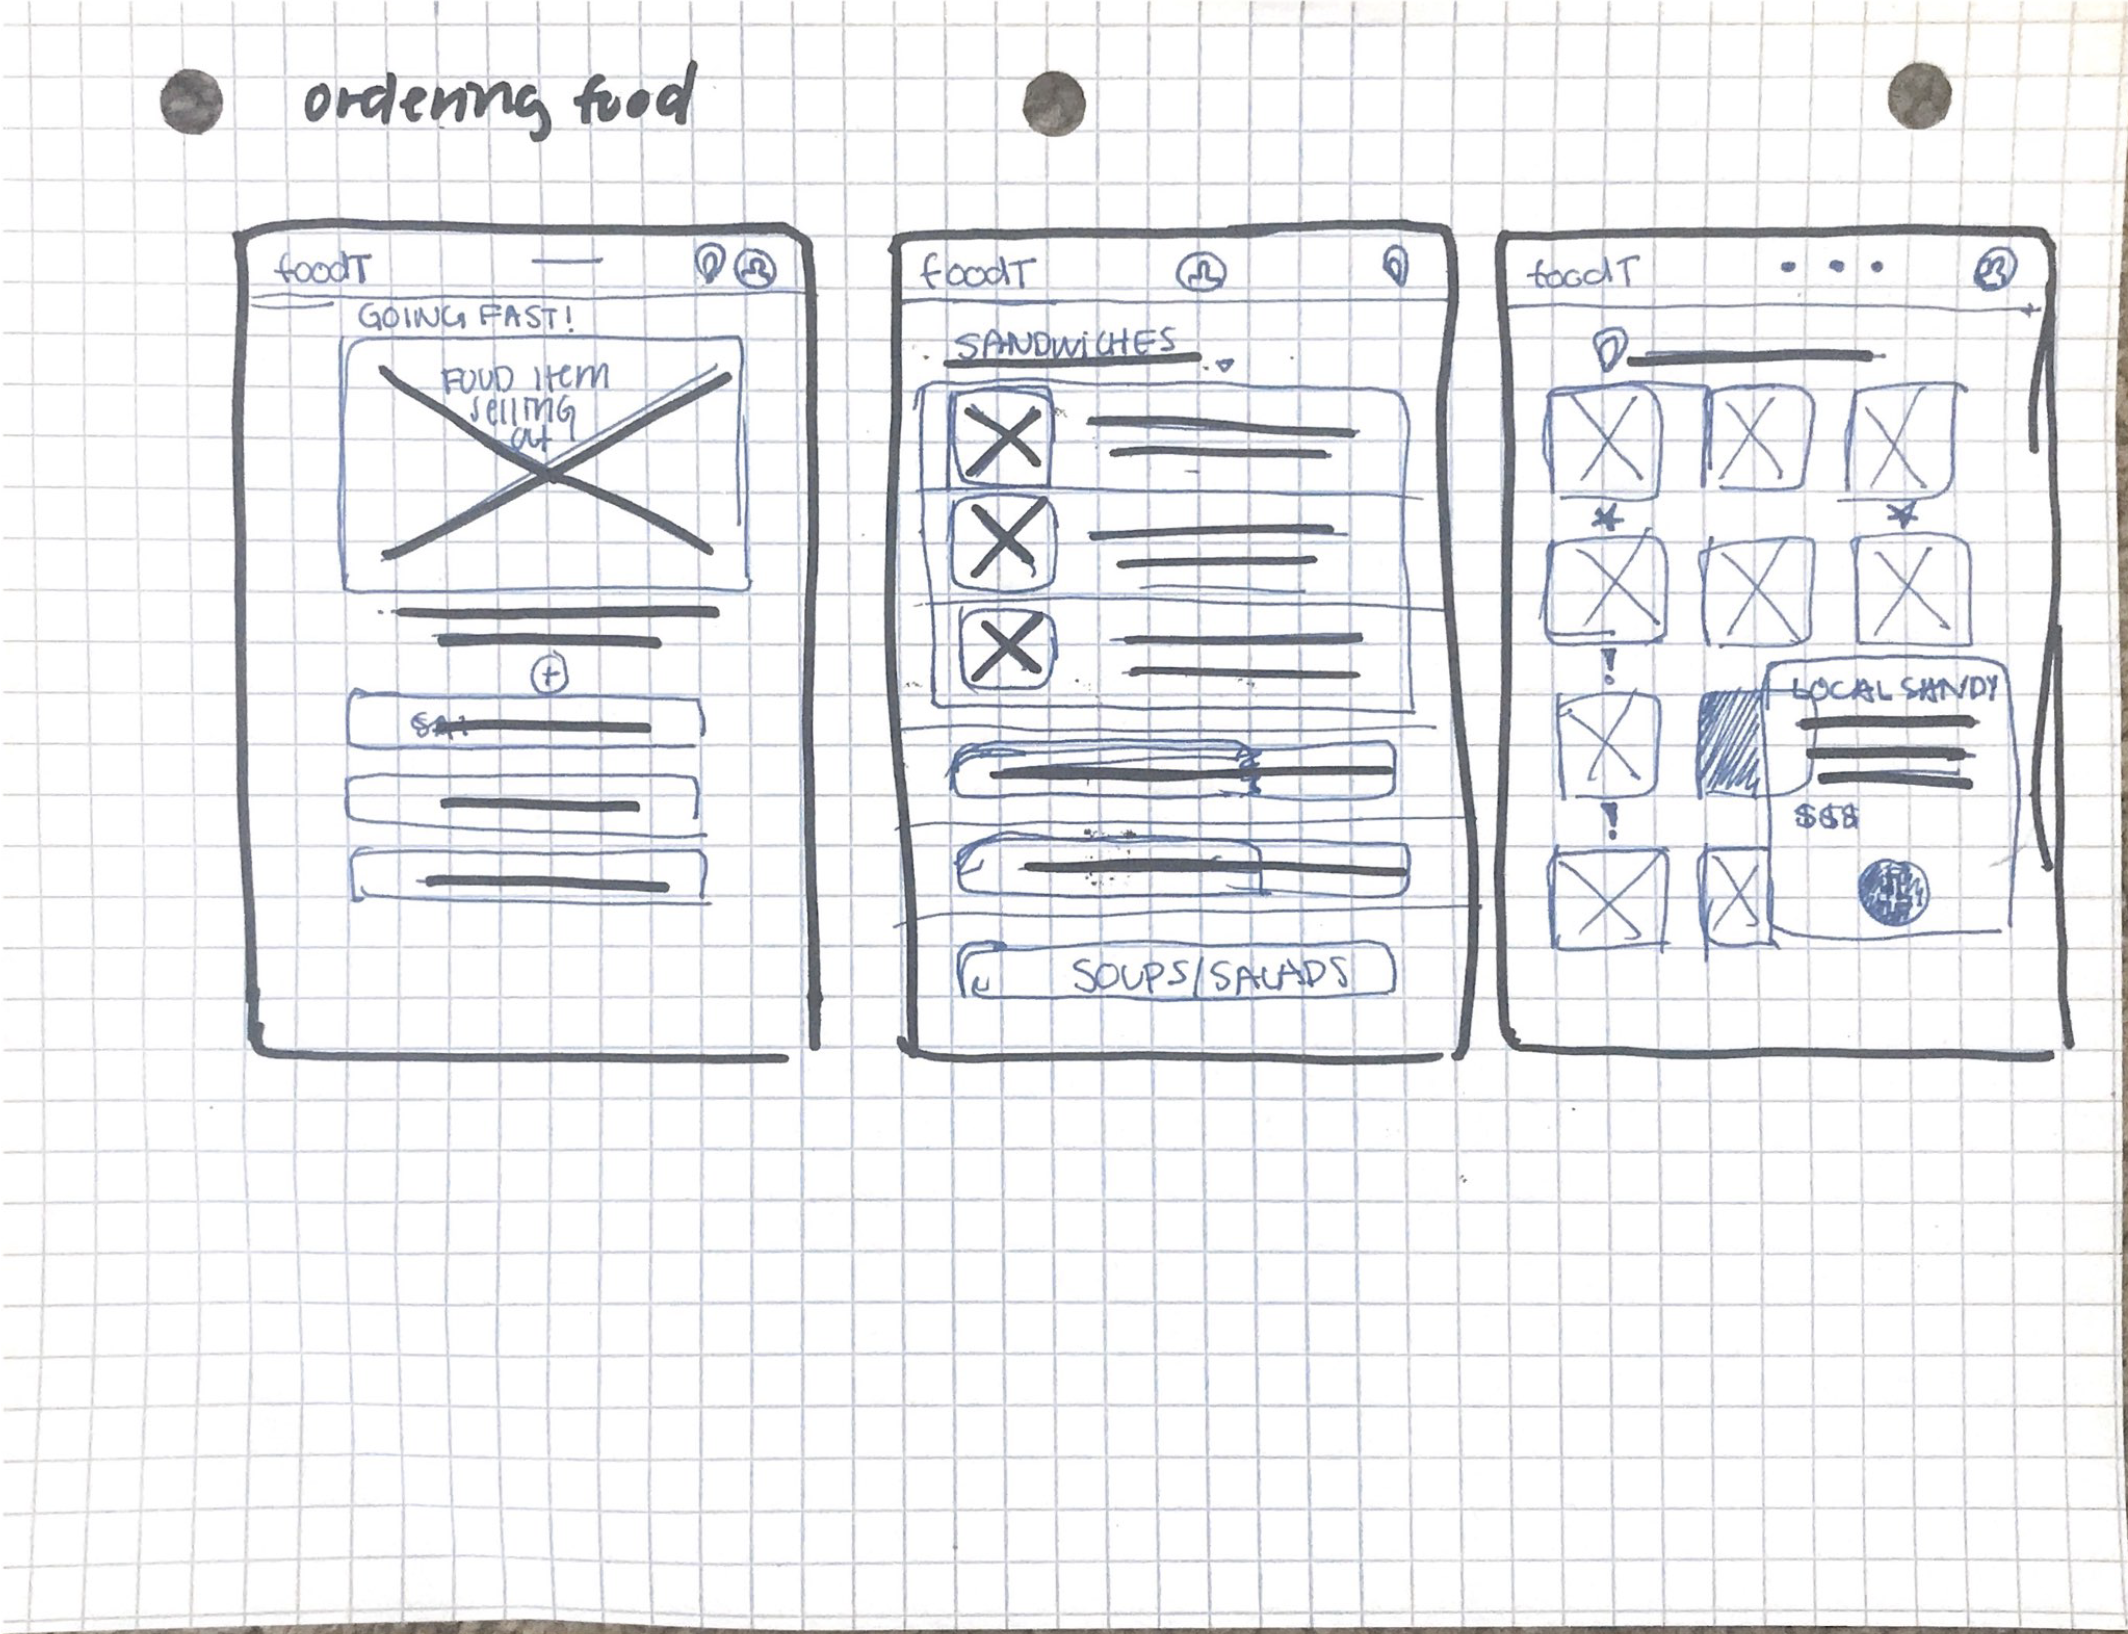 ordering food
foodT
GOING FAST!
FOOD item
selling
at
foodT
SANDWICHES
SOUPS/SALADS
foodT
LOCAL SANDY
$$$